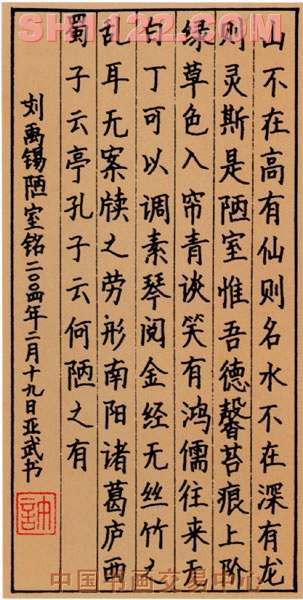 SH1122.COM
山不在高有仙则名水不在深有龙
则灵斯是陋室惟吾德馨苔痕上阶
绿草色入帘青谈笑有鸿儒往来无
白丁可以调素琴阅金经无丝竹之
乱耳无案牍之劳形南阳诸葛庐西
蜀子云亭孔子云何陋之有
刘禹锡陋室铭二〇〇四年二月十九日亚武书
中国书画交易中心